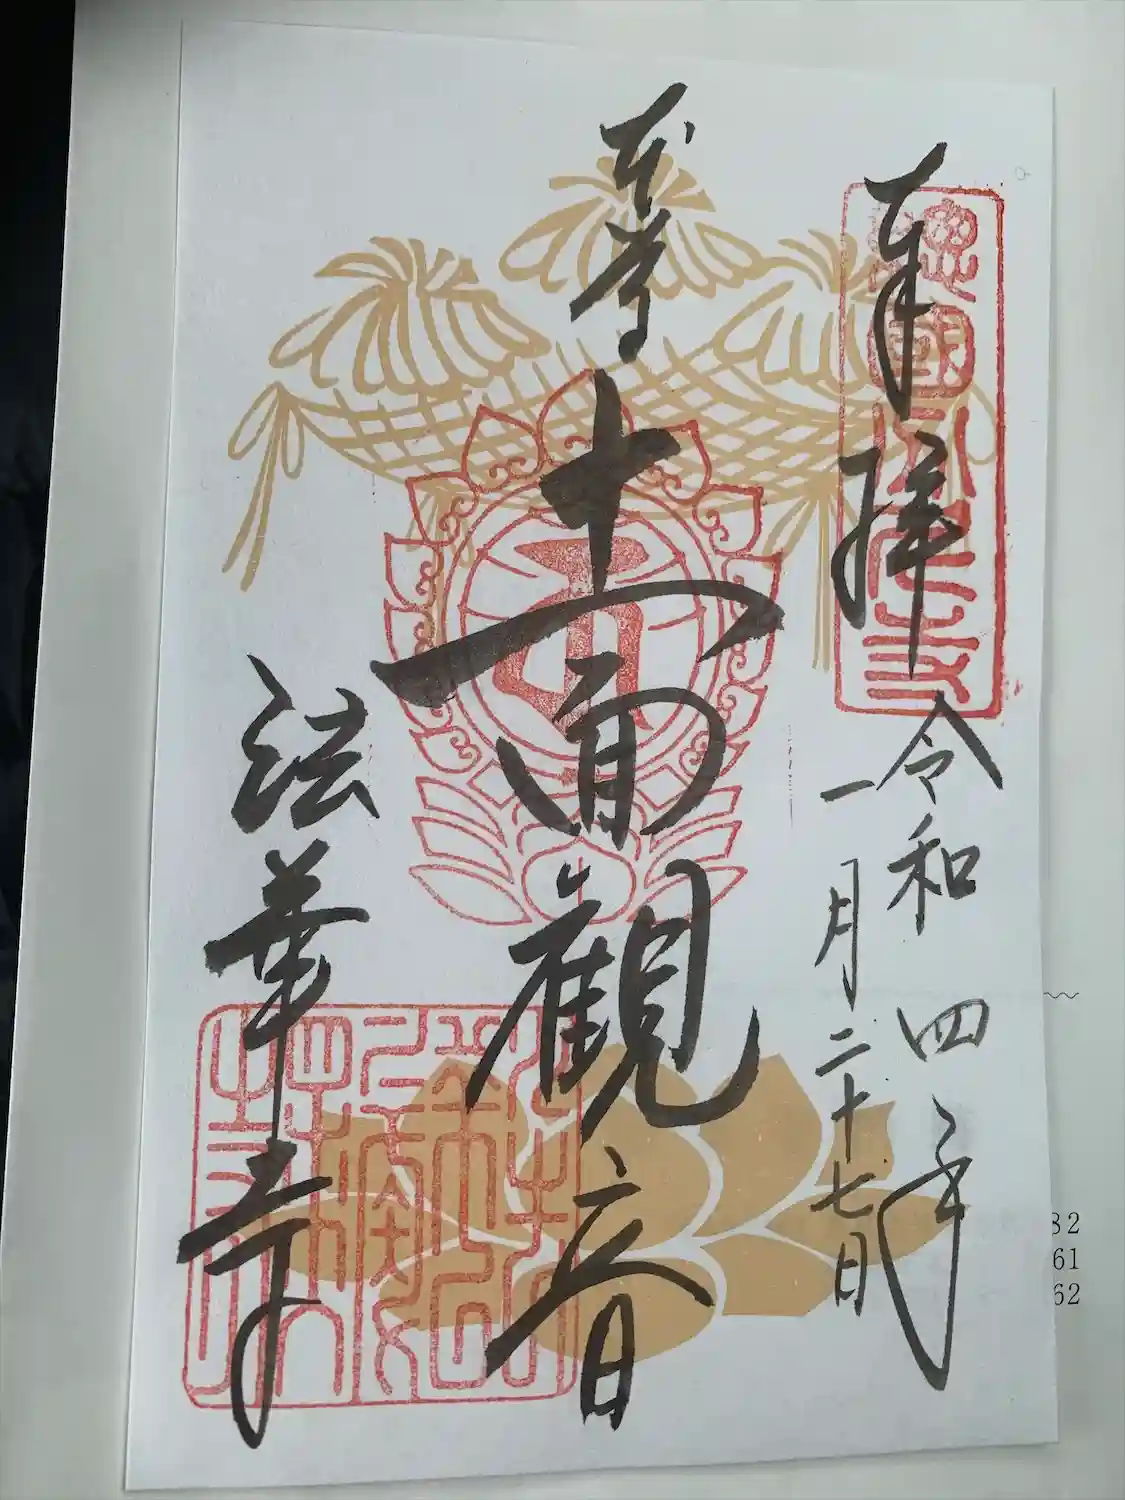 奉拝
令和四年
一月二十七日
本尊
十一面観音
法華寺
82
61
62